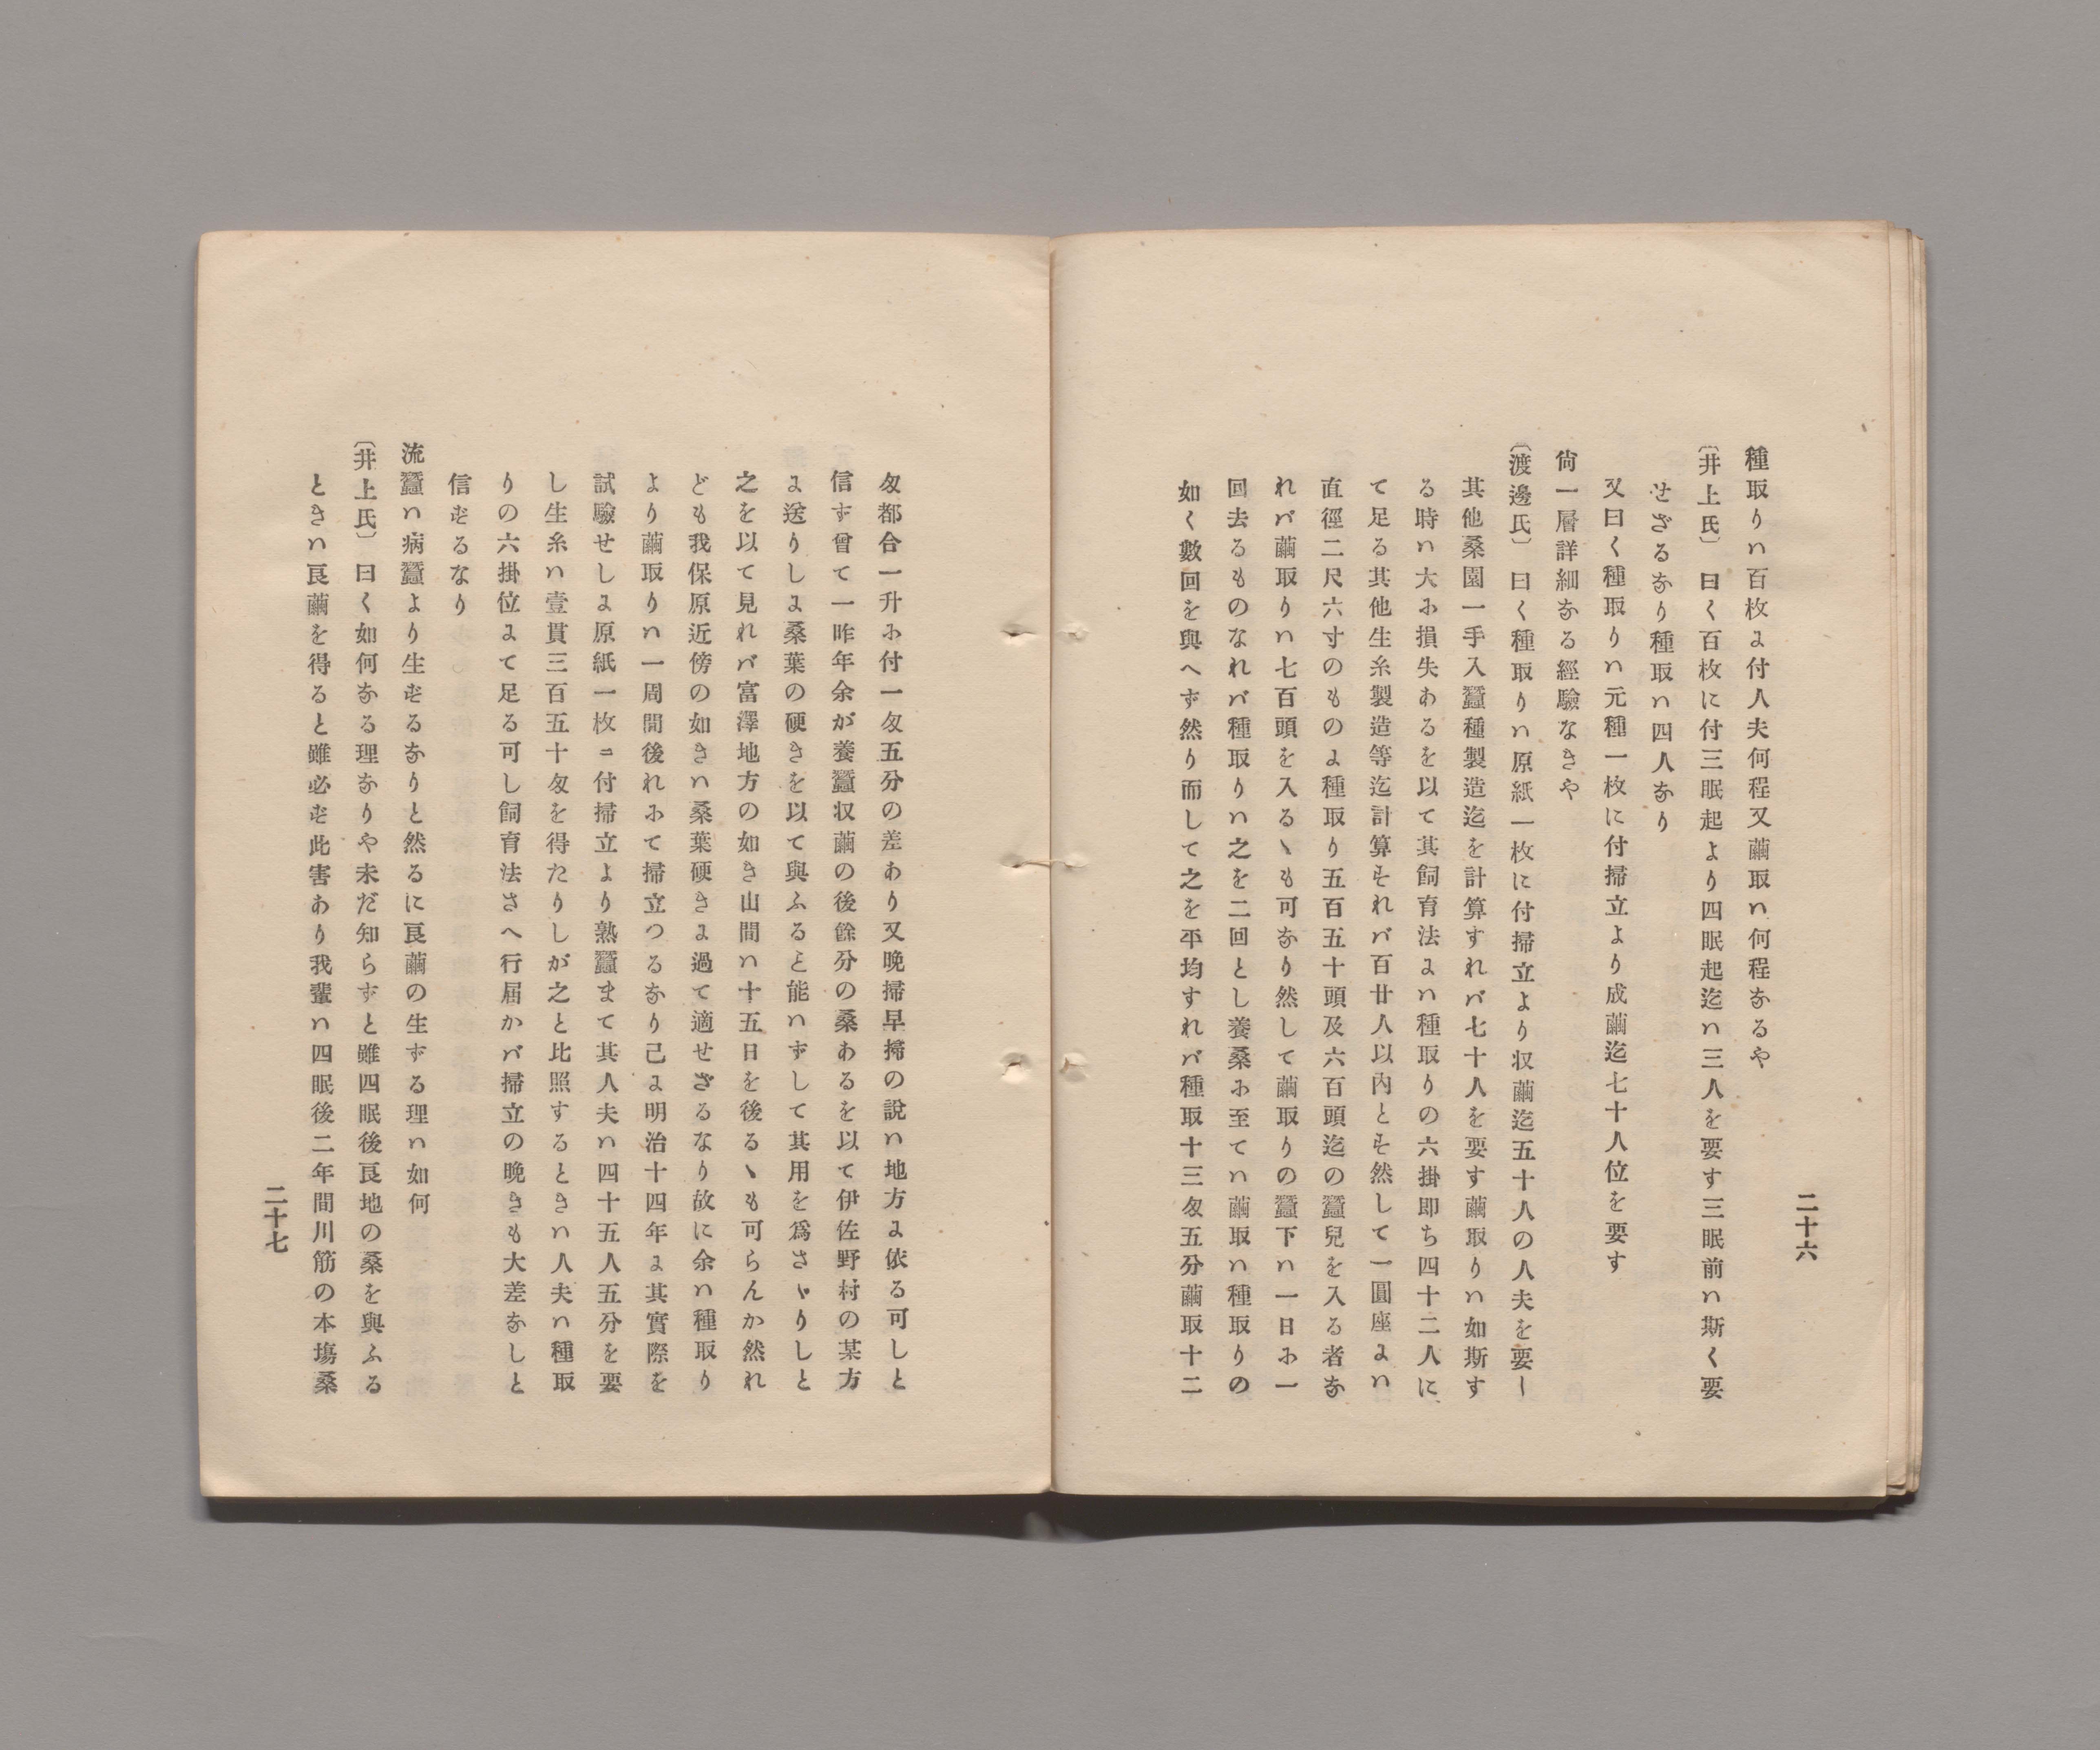 二十六
種取りハ百枚よ付人夫何程又繭取ハ何程なるや
〔井上氏〕曰く百枚に付三眠起より四眠起迄ハ三人を要す三眠前ハ斯く要
せざるなり種取ハ四人なり
又曰く種取りハ元種一枚に付掃立より成繭迄七十人位を要す
尙一層詳細なる經驗なきや
〔渡邊氏〕曰く種取りハ原紙一枚に付掃立より収繭迄五十人の人夫を要し
其他桑園一手入蠶種製造迄を計算すれバ七十人を要す繭取りハ如斯す
る時ハ大ふ損失あるを以て其飼育法よハ種取りの六掛即ち四十二人に
て足る其他生糸製造等迄計算それバ百廿人以内とそ然して一圓座よハ
直徑二尺六寸のものよ種取り五百五十頭及六百頭迄の蠶兒を入る者な
れバ繭取りハ七百頭を入るヽも可なり然して繭取りの蠶下ハ一日ふ一
回去るものなれバ種取りハ之を二回とし養桑ふ至てハ繭取ハ種取りの
如く數回を與へず然り而して之を平均すれバ種取十三匁五分繭取十二
匁都合一升ふ付一匁五分の差あり又晚掃早掃の說ハ地方よ依る可しと
信ず曾て一昨年余が養蠶収繭の後餘分の桑あるを以て伊佐野村の某方
よ送りしよ桑葉の硬きを以て與ふると能ハずして其用を爲さゝりしと
之を以て見れバ富澤地方の如き山間ハ十五日を後るヽも可らんか然れ
ども我保原近傍の如きハ桑葉硬きよ過て適せざるなり故に余ハ種取り
より繭取りハ一周間後れふて掃立つるなり己よ明治十四年よ其實際を
試驗せしよ原紙一枚ニ付掃立より熟蠶まて其人夫ハ四十五人五分を要
し生糸ハ壹貫三百五十匁を得たりしが之と比照するときハ人夫ハ種取
りの六掛位よて足る可し飼育法さへ行屆かバ掃立の晚きも大差なしと
信ぞるなり
流蠶ハ病蠶より生ぞるなりと然るに良繭の生ずる理ハ如何
〔井上氏〕曰く如何なる理なりや未だ知らずと雖四眠後良地の桑を與ふる
ときハ良繭を得ると雖必ぞ此害あり我輩ハ四眠後二年間川筋の本塲桑
二十七